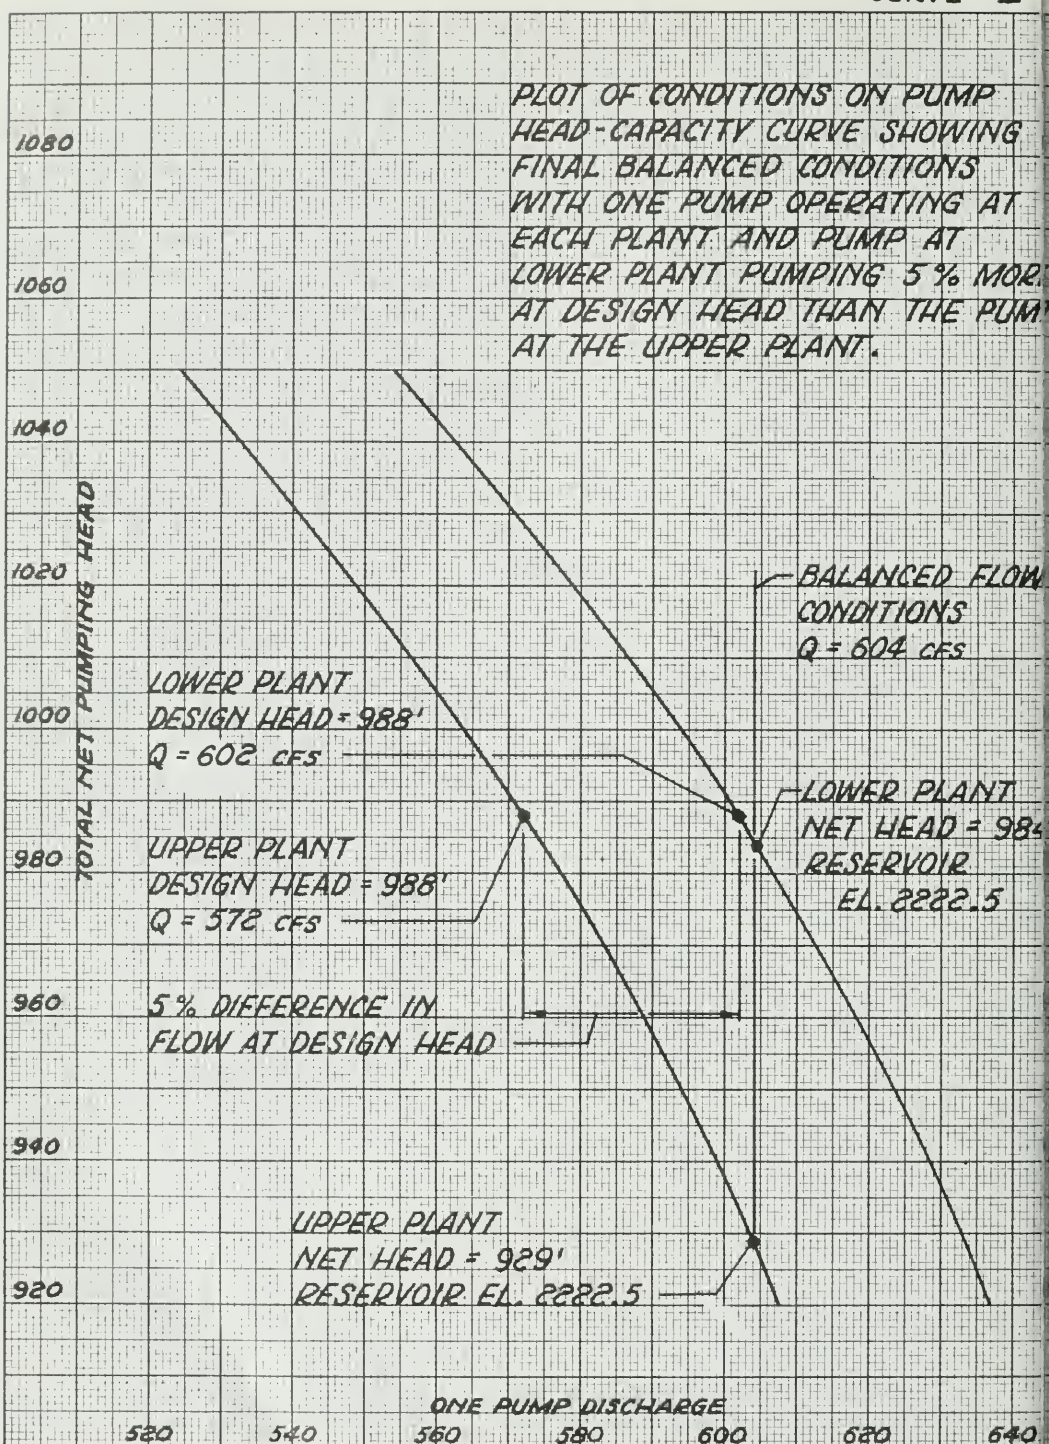 PLOT OF CONDITIONS ON PUMP
HEAD-CAPACITY CURVE SHOWING
FINAL BALANCED CONDITIONS
WITH ONE PUMP OPERATING AT
EACH PLANT AND PUMP AT
LOWER PLANT PUMPING 5% MOR
AT DESIGN HEAD THAN THE PUM
AT THE UPPER PLANT.
1080
1060
1040
1020
1000
980
960
940
920
TOTAL NET PUMPING HEAD
BALANCED FLOW
CONDITIONS
Q = 604 CFS
LOWER PLANT
DESIGN HEAD = 988'
Q = 602 CFS
LOWER PLANT
NET HEAD = 984
RESERVOIR
EL. 2222.5
UPPER PLANT
DESIGN HEAD = 988'
Q = 572 CFS
5% DIFFERENCE IN
FLOW AT DESIGN HEAD
UPPER PLANT
NET HEAD = 929'
RESERVOIR EL. 2222.5
ONE PUMP DISCHARGE
520 540 560 580 600 620 640